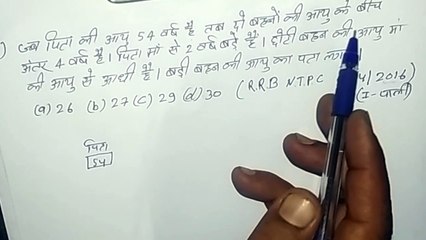 जब पिता की आयु 54 वर्ष है तब दो बहनों की आयु के बीच
अंतर 4 वर्ष है। पिता मां से 2 वर्ष बड़े हैं। छोटी बहन की आयु मां
की आयु से आधी है। बड़ी बहन की आयु का पता
(a) 26 (b) 27 (c) 29 (d) 30 (R.R.B N.T.P.C /2016
(I-पाली)
पिता
54